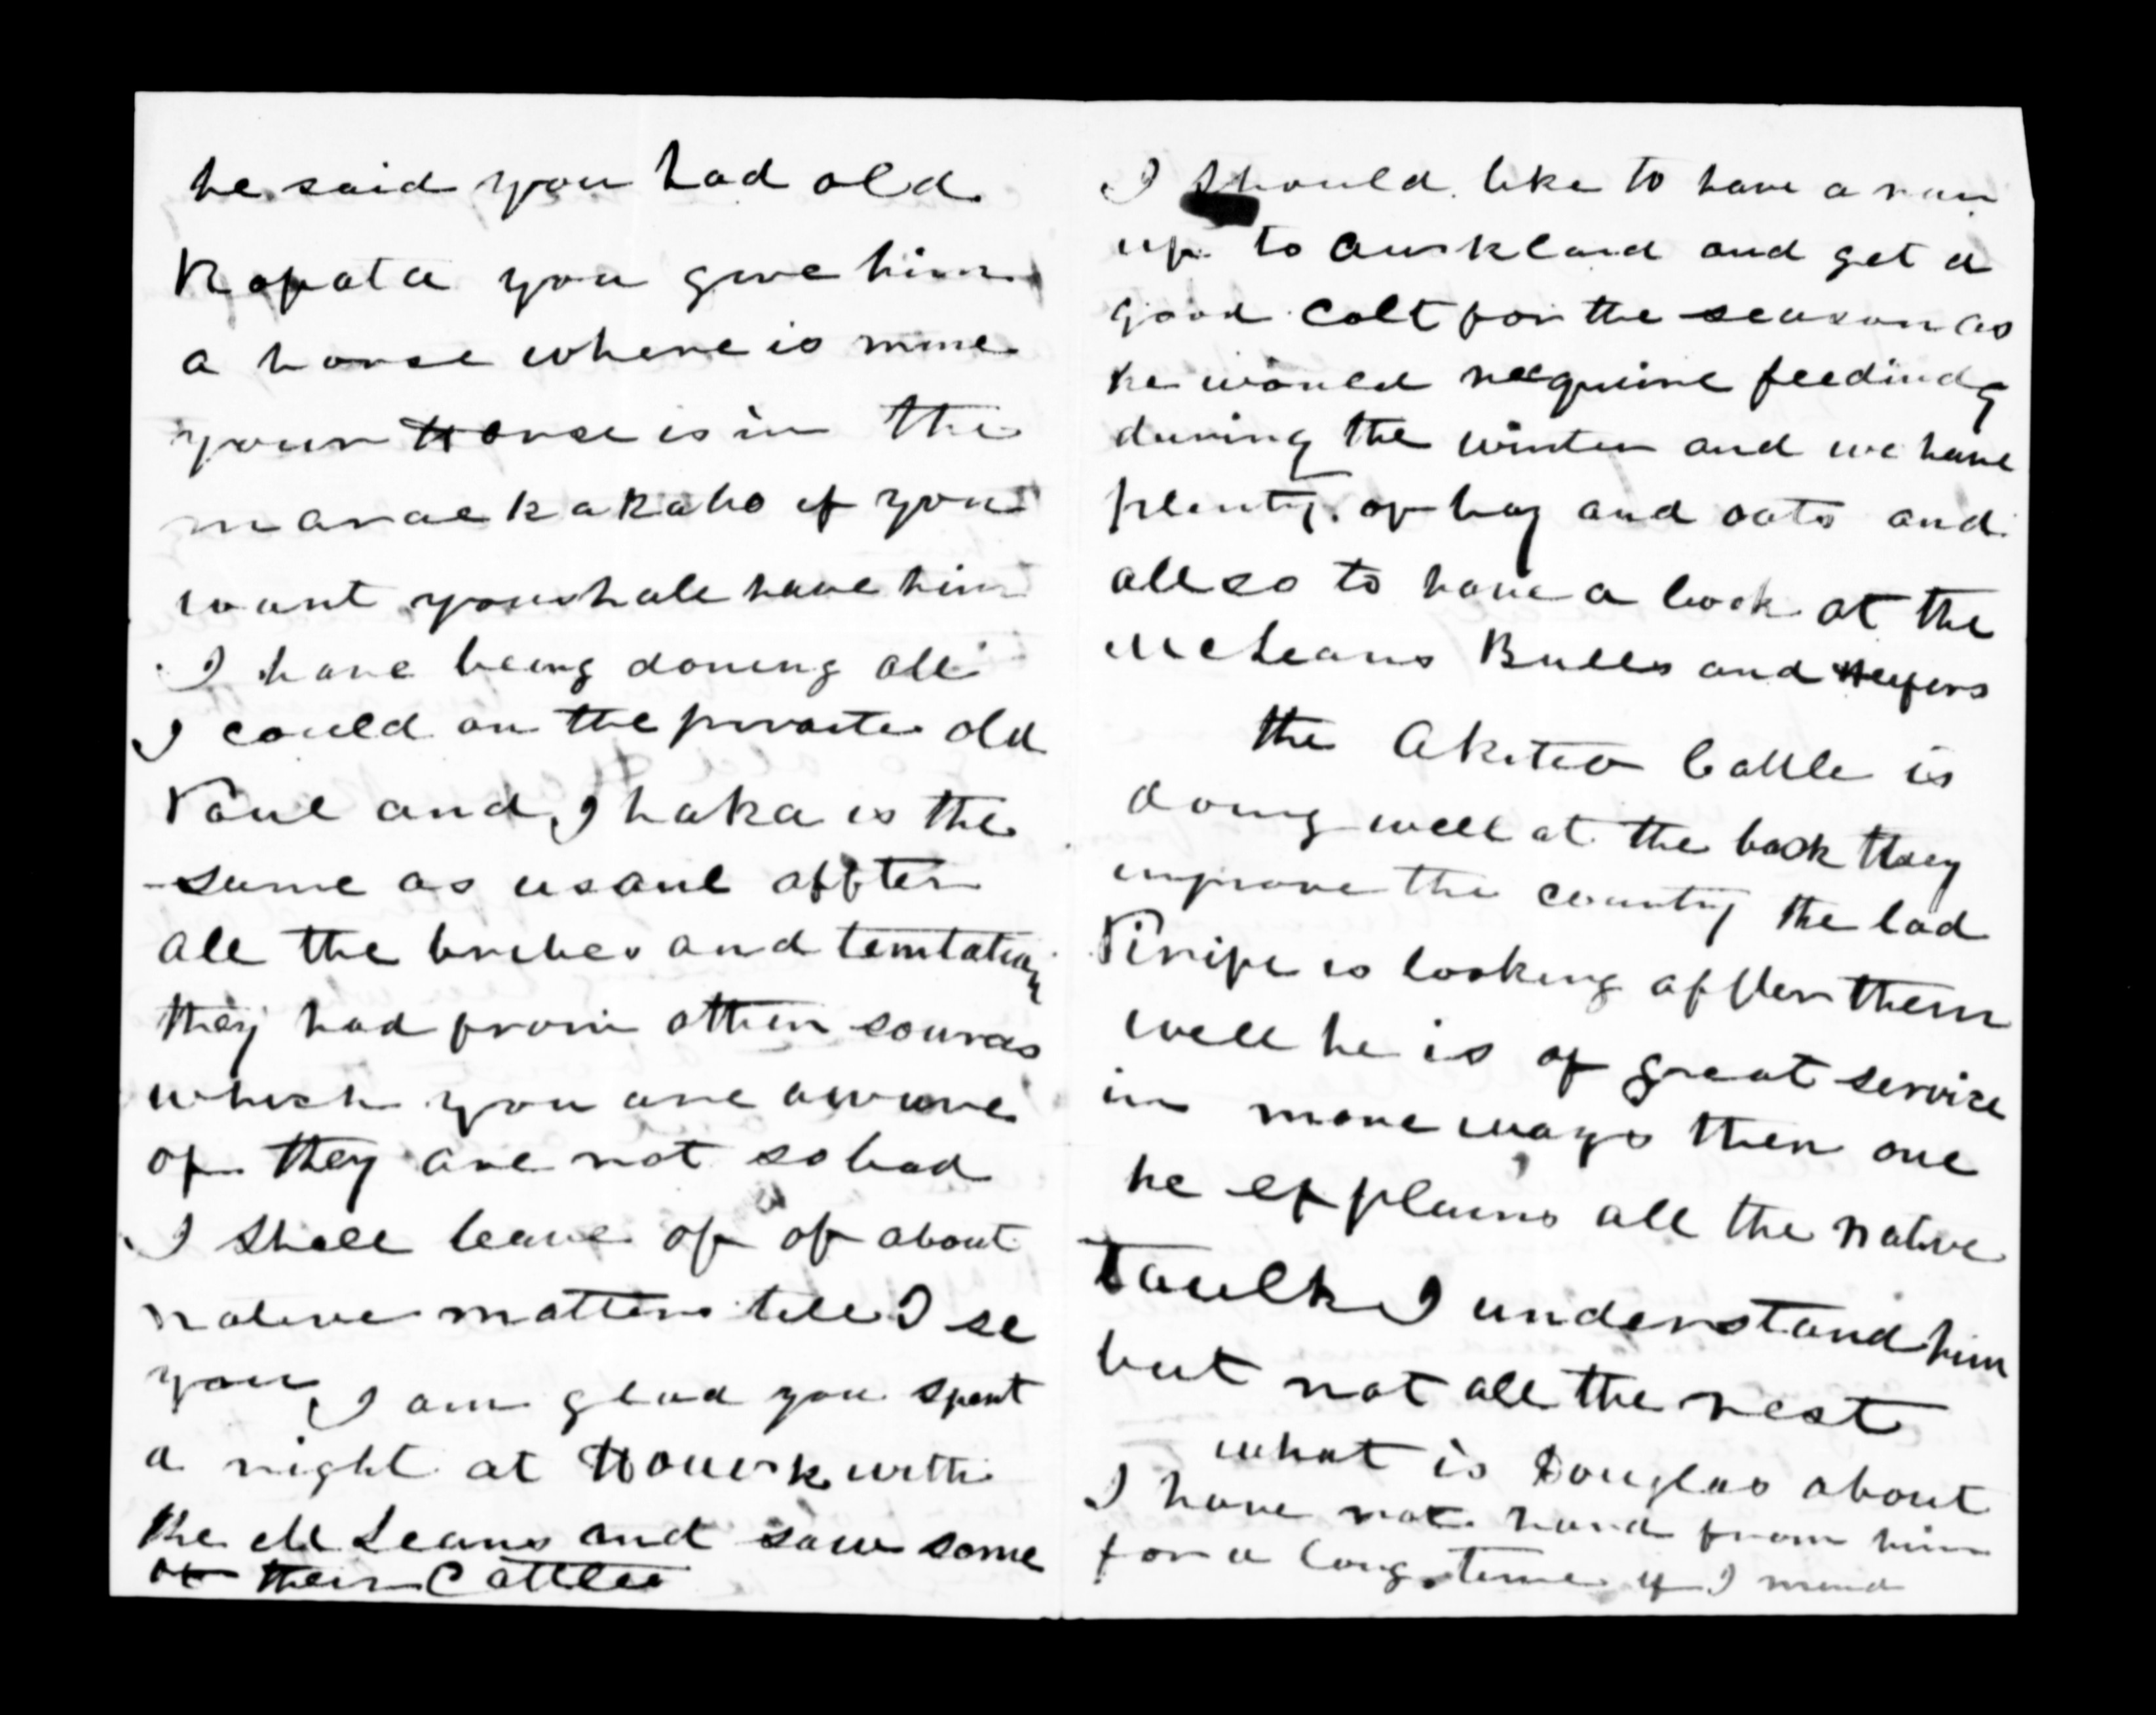 he said you had old
Ropata you give him
a horse where is mine
your Horse is in the
maraekakaho if you
want you shale have him
I have being doneng all
I could on the private old
Paul and Ihaka is the
same as usaul affter
all the bribes and temtation
they had from other sources
which you are aware
of they are not so bad
I shall leave of of about
native matters till I se
you, I am glad you spent
a night at Howick with
the McLeans and saw some
of their Cattles
I should like to have a run
up to Auckland and get a
good Colt for the season as
he would require feeding
during the winter and we have
plenty of hay and oats and
allso to have a look at the
McLeans Bulls and Heifers
the Akiteo Cattle is
doing well at the back they
improve the country the lad
Piripi is looking affter them
well he is of great service
in more ways then one
he explains all the native
Taulk I understand him
but not all the rest
what is Douglas about
I have not hard from him
for a long time if I mind